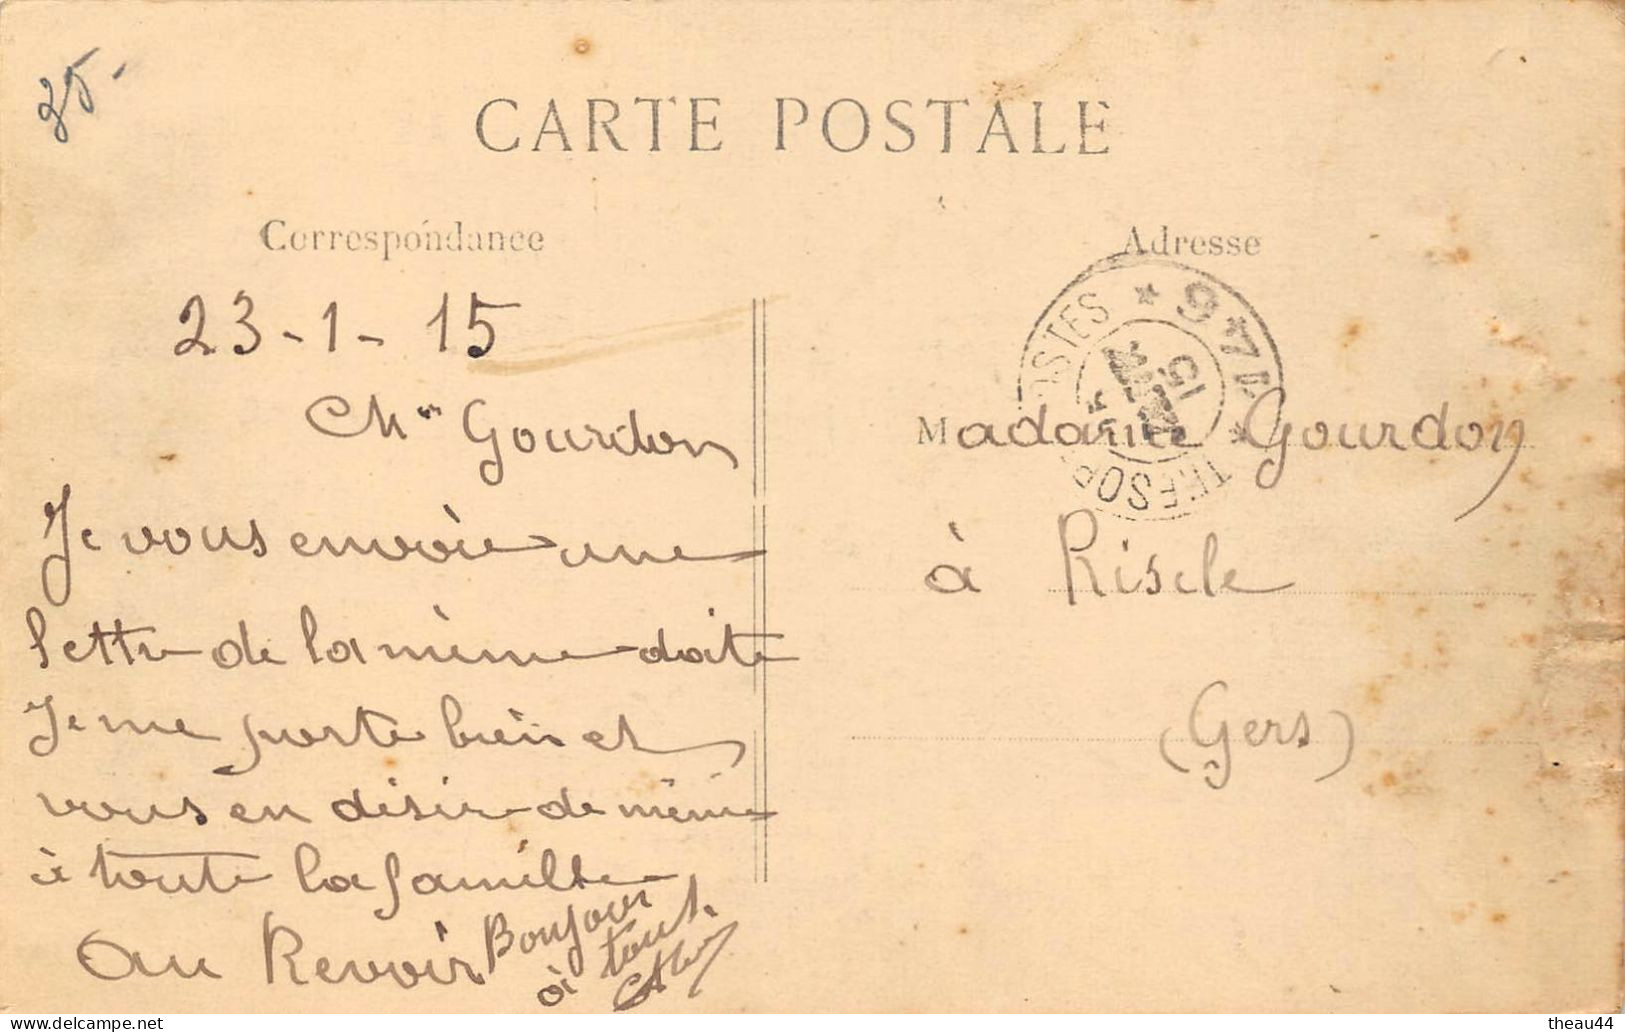 25.
CARTE POSTALE
Correspondance
23-1-15
Ch^re Gourdon
Je vous envoie une
lettre de la même date
Je me porte bien et
vous en désire de même
à toute la famille
Au Revoir
Bonjour
à tous.
Adresse
TRESOR POSTES * 974 *
15
Madame Gourdon
à Riscle
(Gers)
theau44